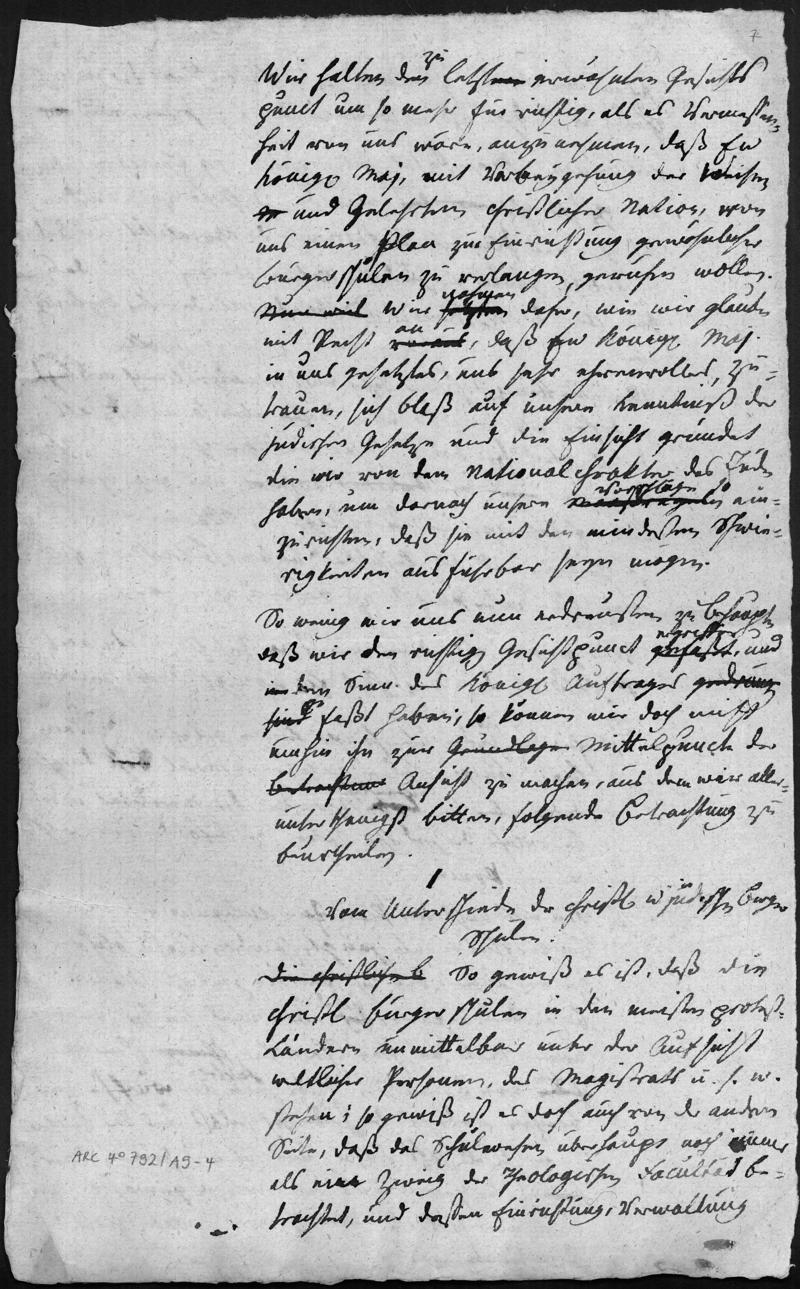 7
Wir halten den zu letzt erwähnten Gesichts
punct um so mehr für richtig, als es Vermessen-
heit von uns wäre, anzunehmen, daß Ew
Königl Maj, mit Vorbeygehung der Weisen
und Gelehrten christlicher Nation, von
uns einen Plan zur Einrichtung gewöhnlicher
bürgerschulen zu verlangen geruhen wollen.
Nun weil Wir setzten nehmen daher, wie wir glauben
mit Recht voraus an, daß Ew Königl Maj.
in uns gesetztes, uns sehr ehrenvolles, Zu-
trauen, sich blaß auf unsere Kenntniß der
jüdischen Gesetze und die Einsicht gründet
die wir von dem Nationalchrakter des Juden
haben, um darnach unsere Maaßregeln Vorschläge so ein-
zurichten, daß sie mit den mindesten Schwie-
rigkeiten ausführbar seyn mögen.
So wenig wir uns nun erdreusten zu behaupten
daß wir den richtigen Gesichtspunct gefaßt, und
in den Sinn des Königl Auftrages gedrungen
sind faßt haben; so können wir doch nicht
umhin ihn zur Grundlage Mittelpuncte der
Betrachtung Ansicht zu machen, aus dem wir aller-
unterthänigst bitten, folgende Betrachtung zu
beurtheilen.
1
Vom Unterschiede der christl u jüdischen Bürger
Schulen.
Die christliche B So gewiß es ist, daß die
christl bürgerschulen in den meisten protest-
Ländern unmittelbar unter der Aufsicht
weltlicher Personen, des Magistrats u. s. w.
stehen; so gewiß ist es doch auch von der andern
Seite, daß das Schulwesen überhaupt noch immer
als ein Zweig der Theologischen Facultät be-
trachtet, und dessen Einrichtung, Verwaltung
ARC 4° 792/A9-4